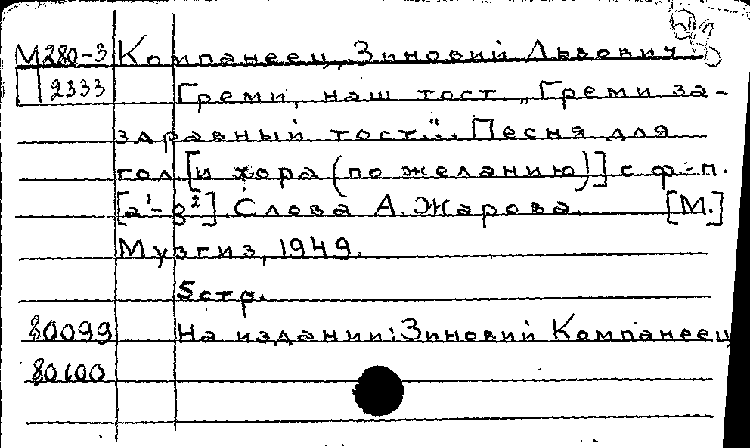 М280-3 Компанеец, Зиновий Львович
2333 Греми, наш тост „Греми за-
здравный тост..." Песня для
гол. [и хора (по желанию)] с ф-п.
[a¹-g²]. Слова А. Жарова. [М.]
Музгиз, 1949.
5стр.
80099 На издании: Зиновий Компанеец
80100